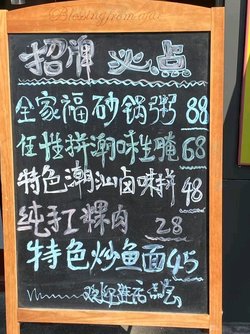 Blessingfrom
招牌 必点
全家福砂锅粥 88
任性拼潮味生腌 68
特色潮汕卤味拼 48
纯手工粿肉 28
特色炒鱼面 45
欢迎进店品尝